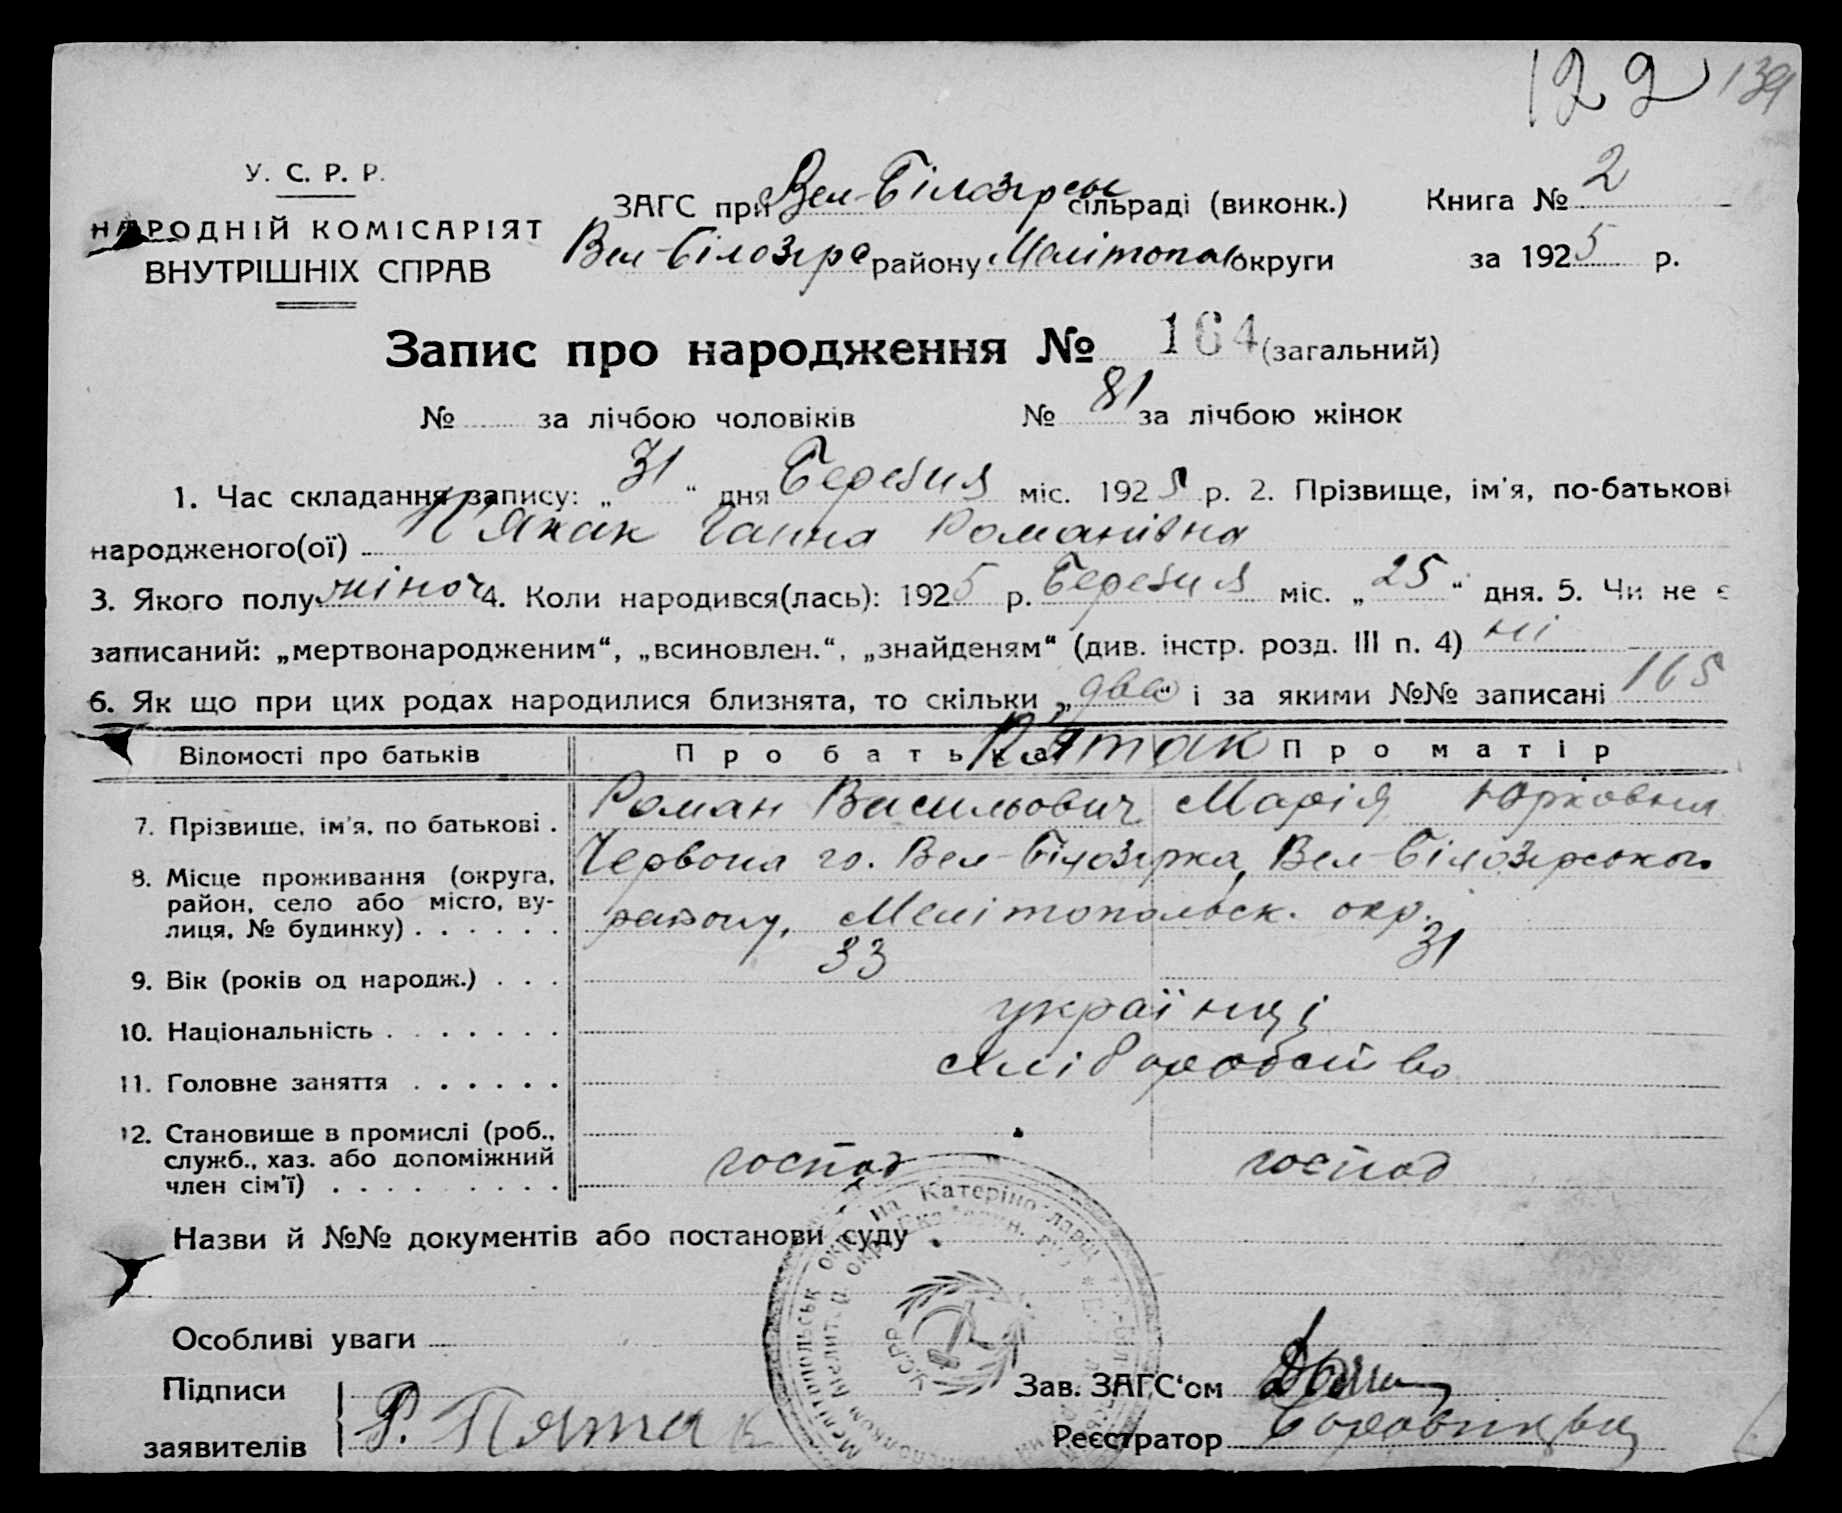 122 139
У. С. Р. Р.
НАРОДНІЙ КОМІСАРІЯТ
ВНУТРІШНІХ СПРАВ
ЗАГС при Вел-Білозірсь сільраді (виконк.) Книга № 2
Вел-Білозірс району Мелітопол округи за 1925 р.
Запис про народження № 164 (загальний)
№ за лічбою чоловіків № 81 за лічбою жінок
1. Час складання запису: „31“ дня Березня міс. 1925 р. 2. Прізвище, ім'я, по-батькові
народженого(ої) Ганна Романівна
3. Якого полу жіноч 4. Коли народився(лась): 1925 р. Березня міс. „25“ дня. 5. Чи не є
записаний: „мертвонародженим“, „всиновлен.“, „знайденям“ (див. інстр. розд. III п. 4) ні
6. Як що при цих родах народилися близнята, то скільки „двое“ і за якими №№ записані 165
Відомості про батьків Про батька Пятак Про матір
7. Прізвище, ім'я, по батькові . Роман Васильович Марія Юрковна
8. Місце проживання (округа, район, село або місто, вулиця, № будинку) . . . . . . Червона го. Вел-Білозірка, Вел-Білозірського
району, Мелітопольск. окр.
9. Вік (років од народж.) . . . 33 31
10. Національність . . . . . . . українці
11. Головне заняття . . . . . . хліборобство
12. Становище в промислі (роб.,
служб., хаз. або допоміжний
член сім'ї) . . . . . . . . . господ господ
Назви й №№ документів або постанови суду
Особливі уваги
Підписи
заявителів Р. Пятак
Зав. ЗАГС'ом
Реєстратор
УСРР